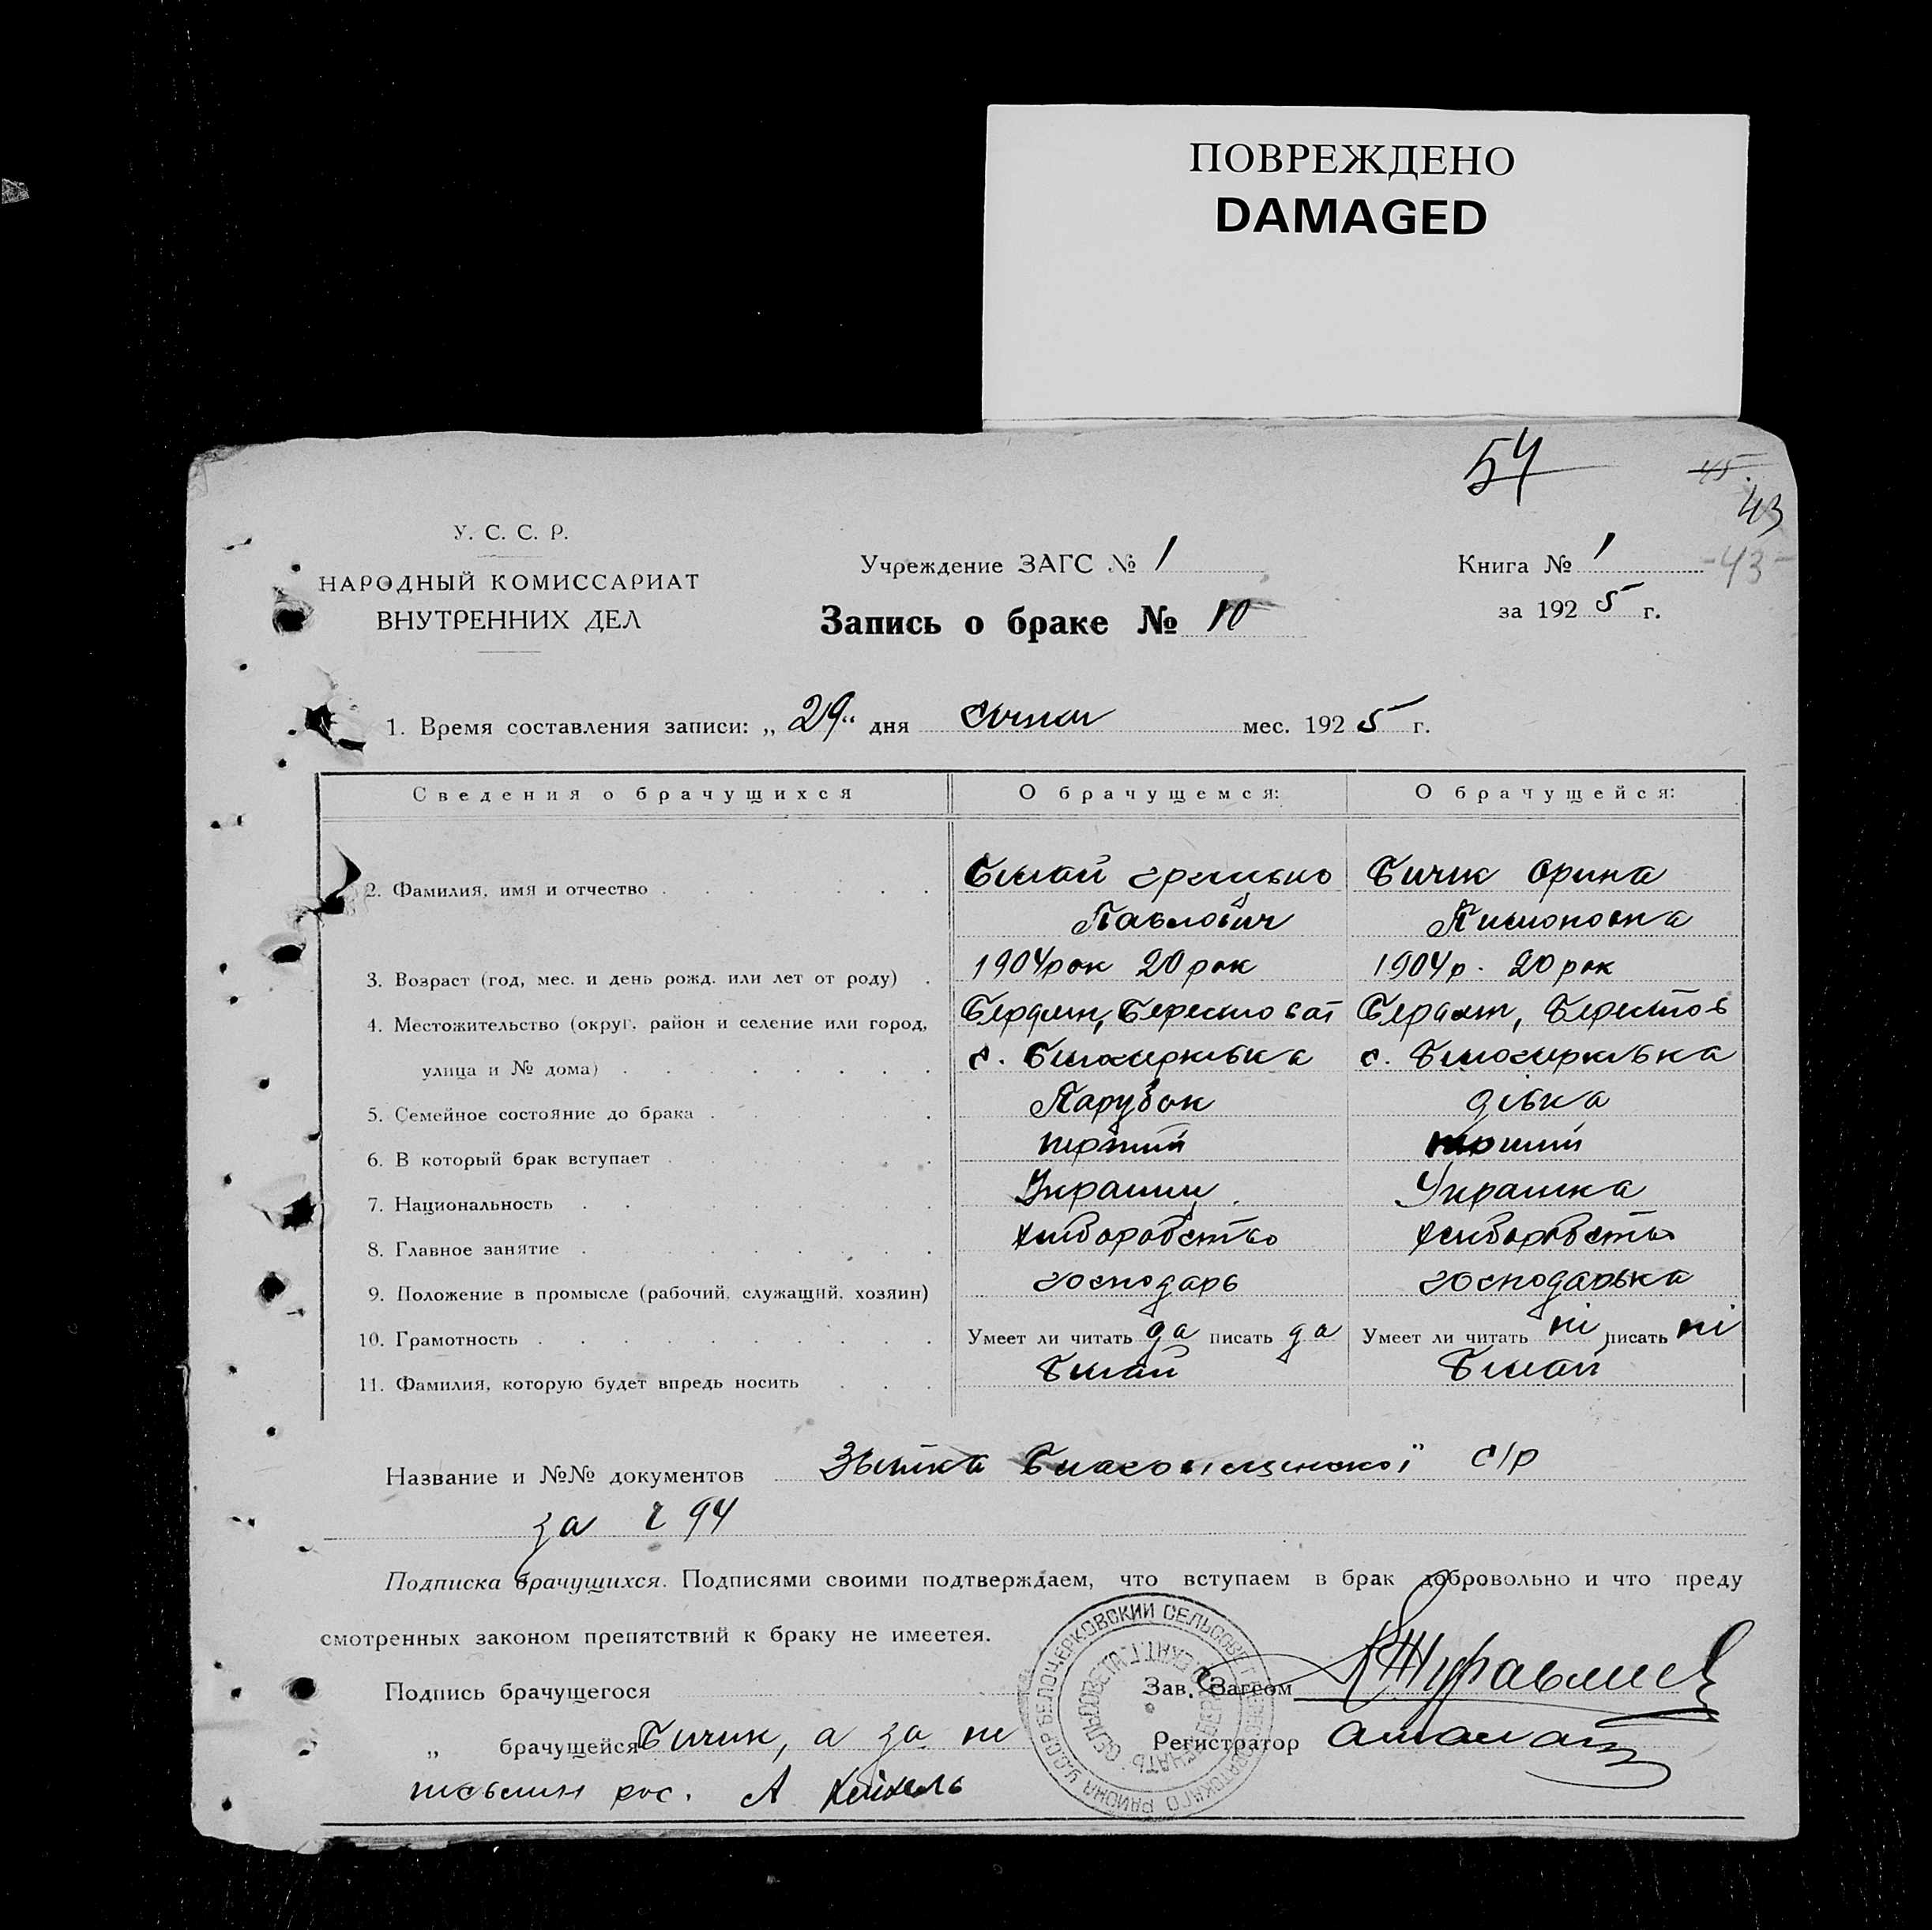 ПОВРЕЖДЕНО
DAMAGED
54
45.
43
-43-
У. С. С. Р.
НАРОДНЫЙ КОМИССАРИАТ
ВНУТРЕННИХ ДЕЛ
Учреждение ЗАГС № 1
Книга № 1
за 1925 г.
Запись о браке № 10
1. Время составления записи: „29“ дня січня мес. 1925 г.
Сведения о брачущихся О брачущемся: О брачущейся:
2. Фамилия, имя и отчество Білай Грицько Бичик Орина
Павлович
3. Возраст (год, мес. и день рожд. или лет от роду) 1904 рок 20 рок 1904 р. 20 рок
4. Местожительство (округ, район и селение или город, Бердян, Берестоват Бердян, Берестов
улица и № дома) с. Білоцерківка с. Білоцерківка
5. Семейное состояние до брака Парубок дівка
6. В который брак вступает перший перший
7. Национальность Українец Українка
8. Главное занятие хліборобство хліборобство
9. Положение в промысле (рабочий, служащий, хозяин) господарь господарька
10. Грамотность Умеет ли читать да писать да Умеет ли читать ні писать ні
11. Фамилия, которую будет впредь носить Білай Білай
Название и №№ документов с/р
за 94
Подписка брачущихся. Подписями своими подтверждаем, что вступаем в брак добровольно и что преду
смотренных законом препятствий к браку не имеется.
Подпись брачущегося
Зав. Загсом
„ брачущейся Бичик, а за не
Регистратор
рос. А
БЕЛОЦЕРКОВСКИЙ СЕЛЬСОВЕТ РАЙОНА У.С.С.Р.